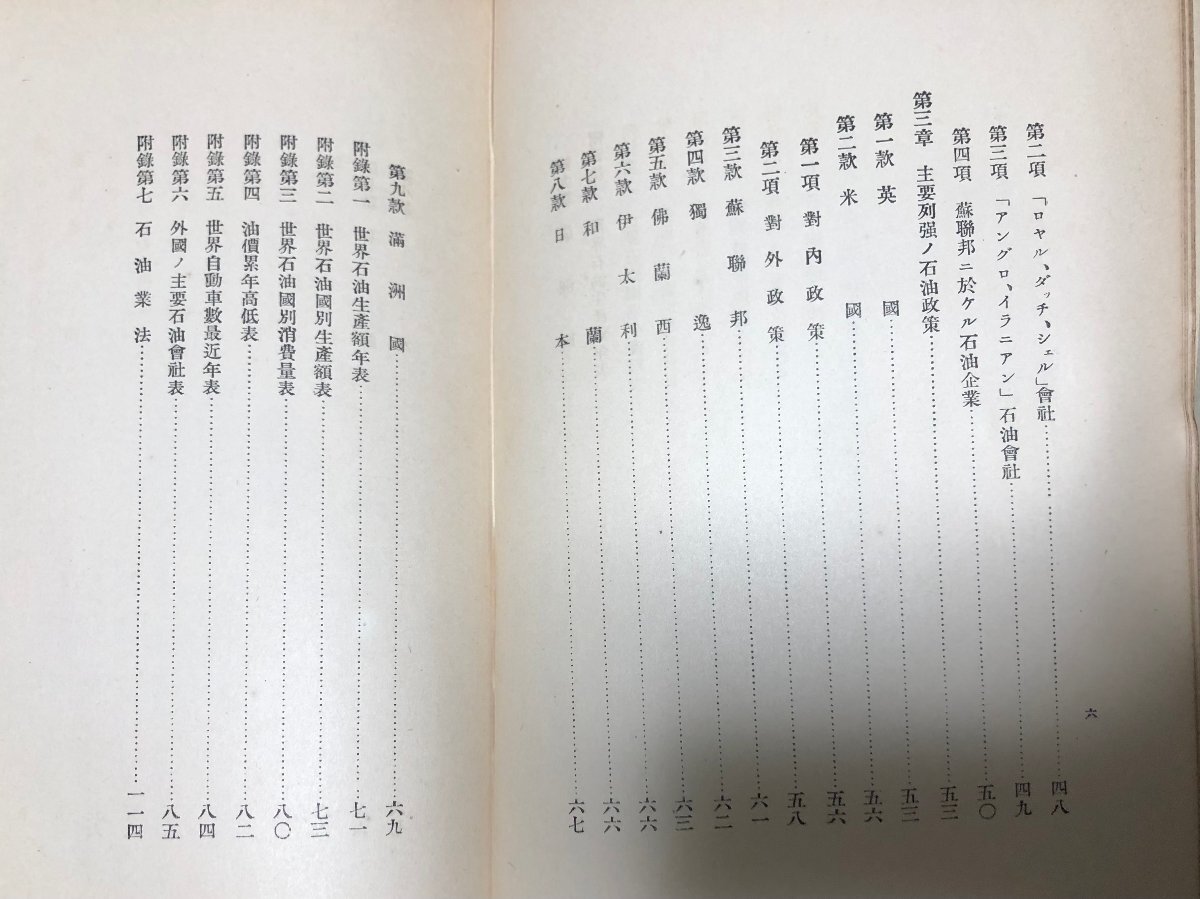 第二項 「ロヤル、ダッチ、シェル」會社……四八
第三項 「アングロ、イラニアン」石油會社……四九
第四項 蘇聯邦ニ於ケル石油企業……五〇
第三章 主要列强ノ石油政策……五三
第一款 英國……五三
第二款 米國……五六
第一項 對內政策……五六
第二項 對外政策……五八
第三款 蘇聯邦……六一
第四款 獨逸……六二
第五款 佛蘭西……六三
第六款 伊太利……六六
第七款 和蘭……六六
第八款 日本……六七
六
第九款 滿洲國……六九
附錄第一 世界石油生產額年表……七一
附錄第二 世界石油國別生產額表……七三
附錄第三 世界石油國別消費量表……八〇
附錄第四 油價累年高低表……八二
附錄第五 世界自動車數最近年表……八四
附錄第六 外國ノ主要石油會社表……八五
附錄第七 石油業法……一一四